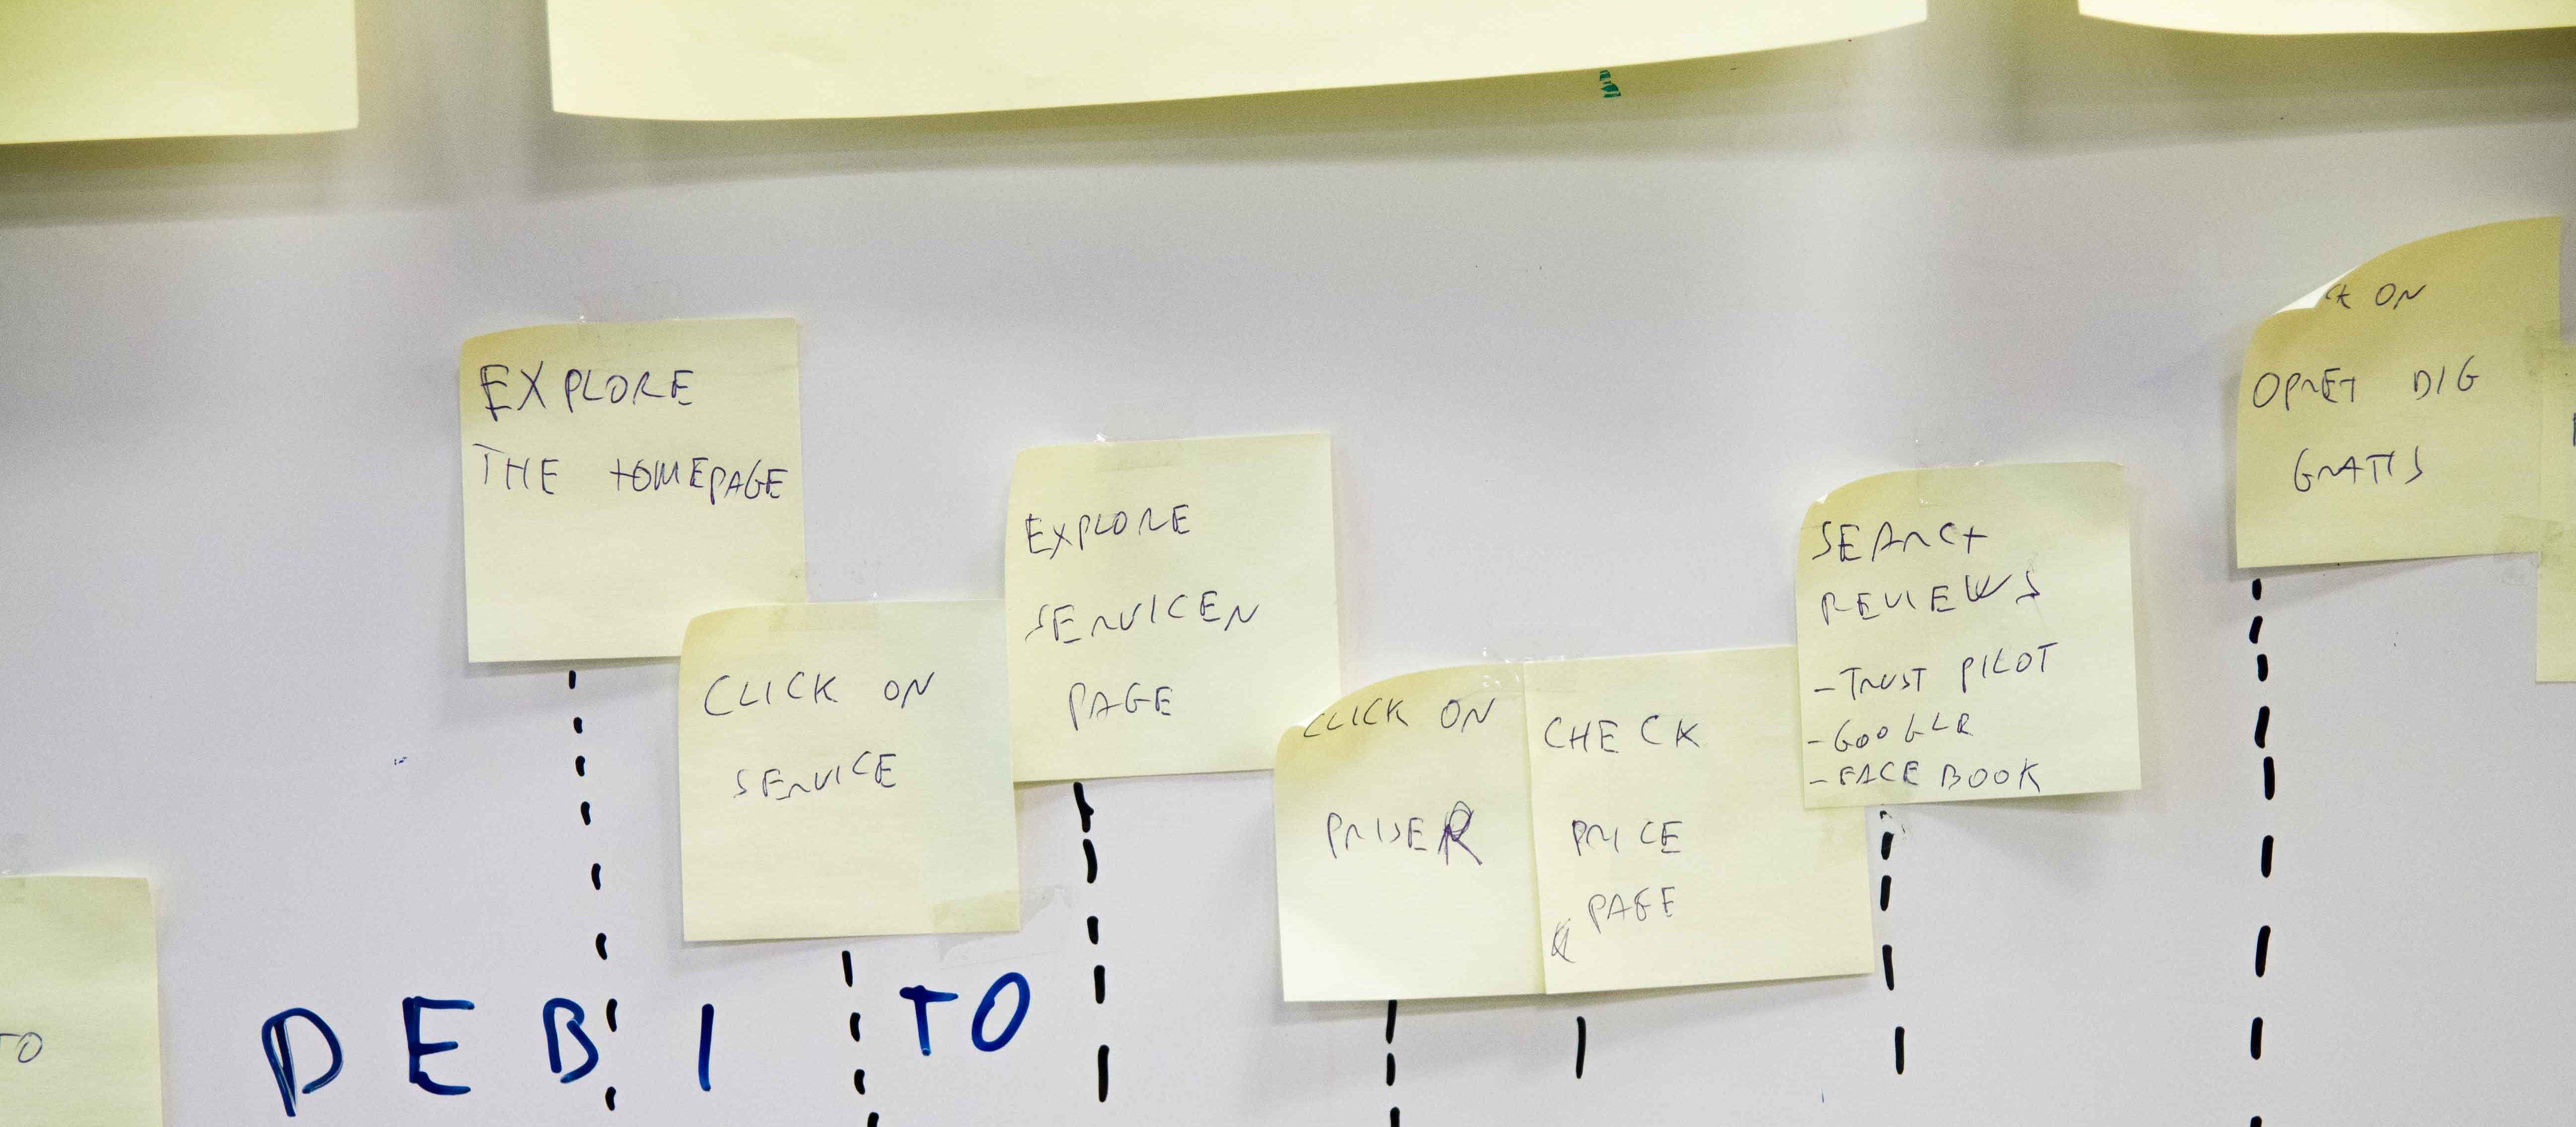 EXPLORE
THE HOMEPAGE
CLICK ON
SERVICE
EXPLORE
SERVICEN
PAGE
CLICK ON
PRISER
CHECK
PRICE
PAGE
SEARCH
REVIEWS
- TRUST PILOT
- GOOGLE
- FACE BOOK
CK ON
OPRET DIG
GRATIS
TO
DEBITO